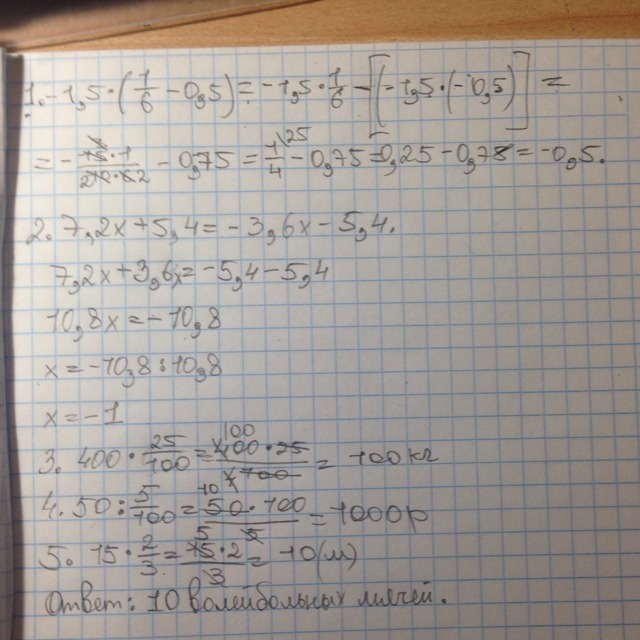 1. -1,5·(1/6 -0,5)=-1,5·1/6 -[-1,5·(-0,5)] =
= - 15·1/10·6 2 - 0,75 = 1\25/4 - 0,75=0,25-0,75=-0,5.
2. 7,2x+5,4=-3,6x-5,4.
7,2x+3,6x=-5,4-5,4
10,8x=-10,8
x=-10,8:10,8
x=-1
3. 400·25/100=100 400·25/4 100= 100кг
4. 50:5/100=10 50·100/5=1000р
5. 15·2/3=5 15·2/3= 10(м)
Ответ: 10 волейбольных мячей.